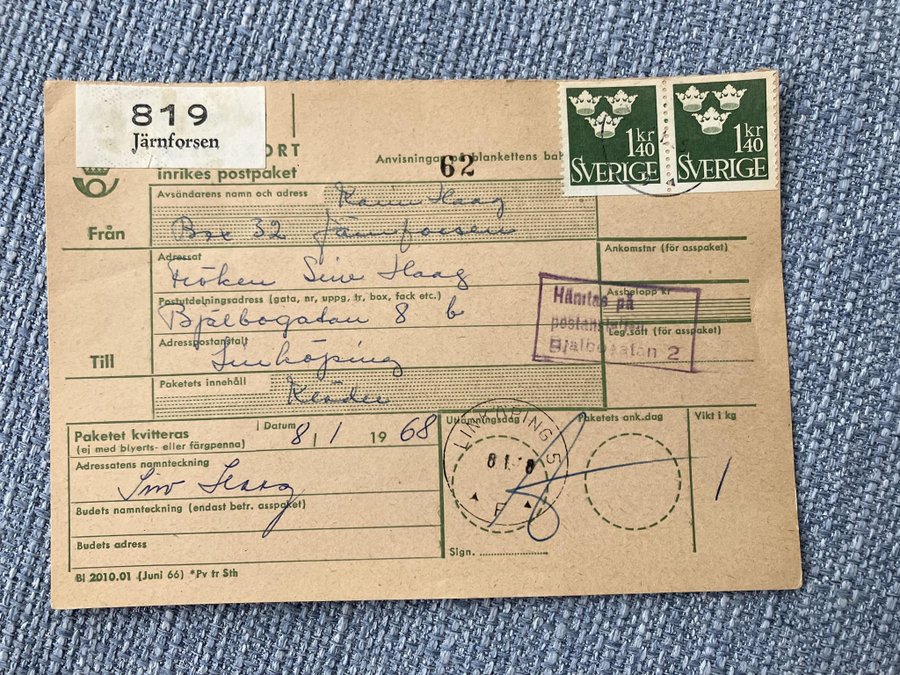 819
Järnforsen
ORT
inrikes postpaket
Anvisningar på blankettens
62
1 kr 40
SVERIGE
1 kr 40
SVERIGE
Från
Avsändarens namn och adress
Karin Haag
Box 32 Järnforsen
Ankomstnr (för asspaket)
Adressat
Fröken Siw Haag
Assbelopp kr
Postutdelningsadress (gata, nr, uppg, tr, box, fack etc.)
Bjälbogatan 8 b
Leg.sätt (för asspaket)
Hämtas på
Bjälbogatan 2
Till
Adresspostanstalt
Linköping
Pakets innehåll
Kläder
Paketet kvitteras
(ej med blyerts- eller färgpenna)
Datum
8/1 1968
Utlämningsdag
Paketets ank.dag
Vikt i kg
1
LINKÖPING 5
Adressatens namnteckning
Siw Haag
Budets namnteckning (endast betr. asspaket)
Budets adress
Sign.
Bl 2010.01 (Juni 66) *Pv tr Sth